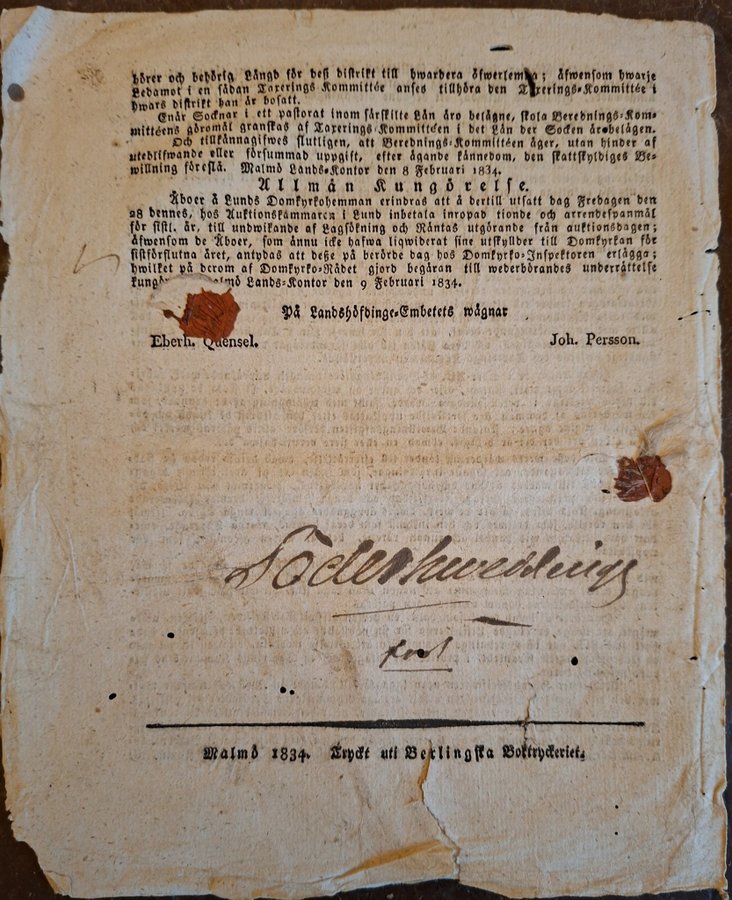 hörer och behörig Längd för deß distrikt till hwardera öfwerlemna; äfwensom hwarje
Ledamot i en sådan Taxerings-Kommittée anses tillhöra den Taxerings-Kommittée i
hwars distrikt han är bosatt.
Enär Socknar i ett pastorat inom särskilte Län äro belägne, skola Berednings-Kom-
mittéens göromål granskas af Taxerings-Kommittéen i det Län der Socken är belägen.
Och tillkännagifwes slutligen, att Berednings-Kommittéen äger, utan hinder af
uteblifwande eller försummad uppgift, efter ägande kännedom, den skattskyldiges Be-
willning föreslå. Malmö Lands-Kontor den 8 Februari 1834.
Allmän Kungörelse.
Åboer å Lunds Domkyrkohemman erindras att å dertill utsatt dag Fredagen den
28 dennes, hos Auktionskammaren i Lund inbetala inropad tionde och arrendespanmål
för sistl. år, till undwikande af Lagsökning och Räntas utgörande från auktionsdagen;
äfwensom de Åboer, som ännu icke hafwa liqwiderat sine utskylder till Domkyrkan för
sistförflutna året, antydas att deße på berörde dag hos Domkyrko-Inspektoren erlägga;
hwilket på derom af Domkyrko-Rådet gjord begäran till wederbörandes underrättelse
Lands-Kontor den 9 Februari 1834.
På Landshöfdinge-Embetets wägnar
Eberh. Quensel. Joh. Persson.
Malmö 1834. Tryckt uti Berlingska Boktryckeriet.